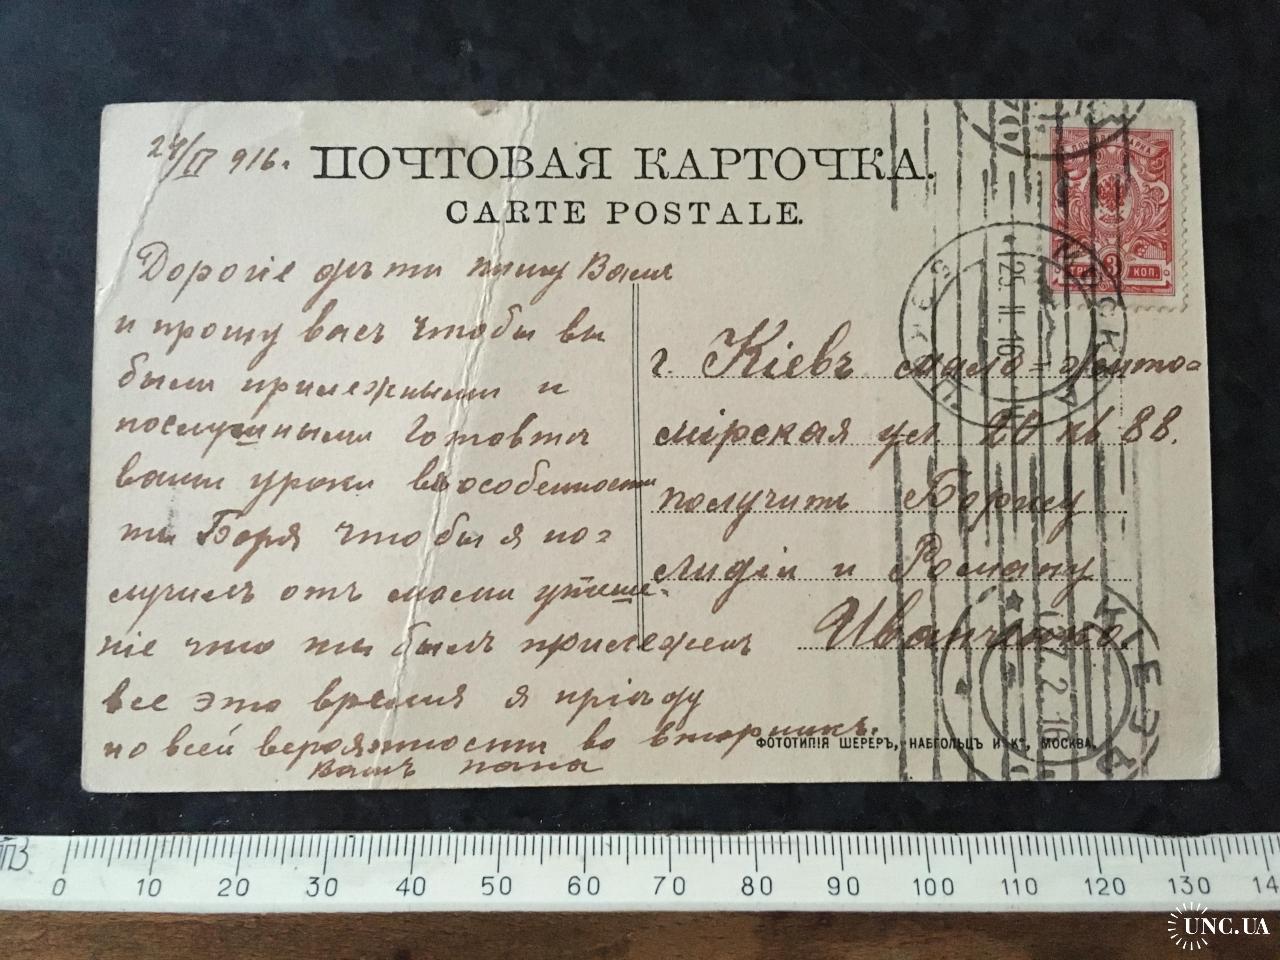 24/II 916 г.
ПОЧТОВАЯ КАРТОЧКА.
CARTE POSTALE.
Дорогіе дѣти пишу Вамъ
и прошу васъ чтобы вы
были прилежными и
послушными Готовте
ваши уроки въ особенности
ты Боря чтобы я по=
лучилъ отъ мамы утеше-
ніе что ты былъ прилежен
все это время я пріѣду
по всей вероятности во вторникъ.
Вашъ папа
г. Кіевъ мало=жито=
мірская ул 20 кв 88.
получить Борису
Лидіи и Роману
Иванченко.
ФОТОТИПІЯ ШЕРЕРЪ, НАБГОЛЬЦЪ И Кº, МОСКВА.
ТРИ 3 КОП.
МОСКВА
25.II.16
КІЕВЪ
27.2.16
0 10 20 30 40 50 60 70 80 90 100 110 120 130 14
UNC.UA